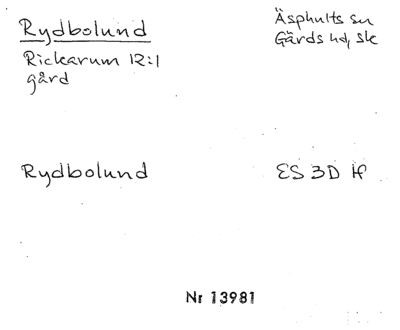 Rydbolund
Äsphults sn
Rickarum 12:1
Gärds hd, Sk
gård
Rydbolund
ES 3D
Nr 13981